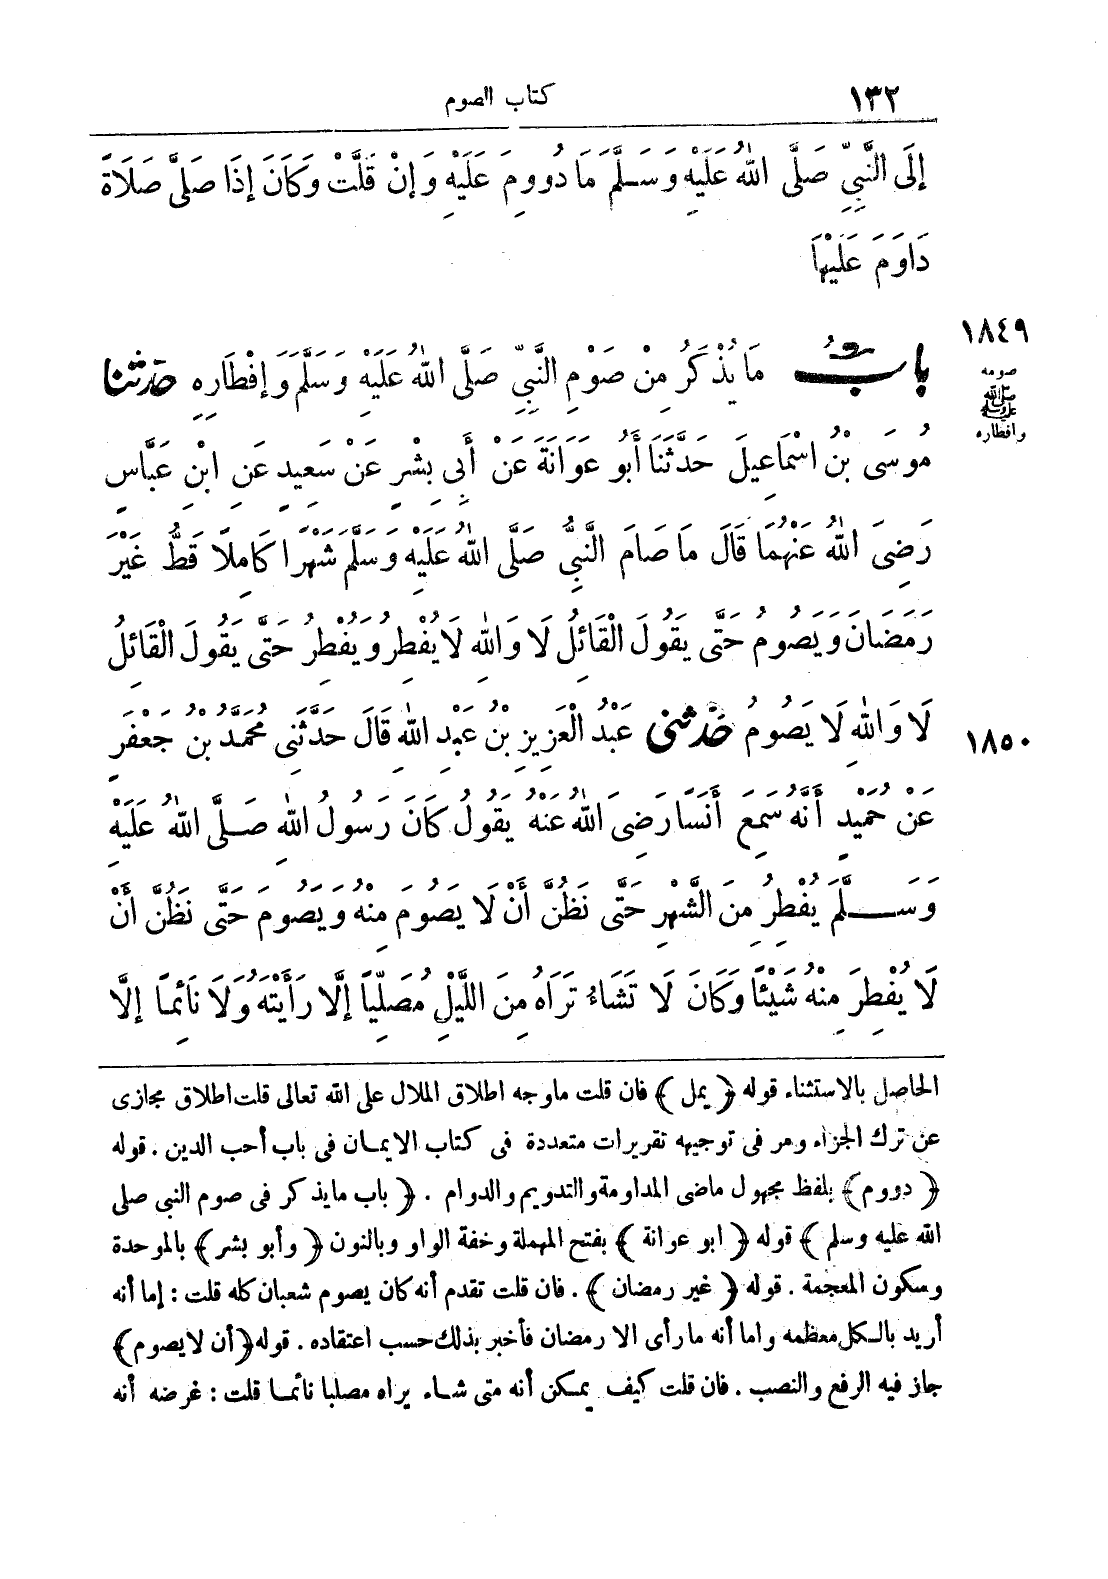 ١٣٢
كتاب الصوم
إِلَى النَّبِيِّ صَلَّى اللهُ عَلَيْهِ وَسَلَّمَ مَا دُووِمَ عَلَيْهِ وَإِنْ قَلَّتْ وَكَانَ إِذَا صَلَّى صَلَاةً
دَاوَمَ عَلَيْهَا
١٨٤٩
صومه
ﷺ
وافطاره
بابُ مَا يُذْكَرُ مِنْ صَوْمِ النَّبِيِّ صَلَّى اللهُ عَلَيْهِ وَسَلَّمَ وَإِفْطَارِهِ حَدَّثَنَا
مُوسَى بْنُ اسْمَاعِيلَ حَدَّثَنَا أَبُو عَوَانَةَ عَنْ أَبِي بِشْرٍ عَنْ سَعِيدٍ عَنِ ابْنِ عَبَّاسٍ
رَضِيَ اللهُ عَنْهُمَا قَالَ مَا صَامَ النَّبِيُّ صَلَّى اللهُ عَلَيْهِ وَسَلَّمَ شَهْرًا كَامِلًا قَطُّ غَيْرَ
رَمَضَانَ وَيَصُومُ حَتَّى يَقُولَ الْقَائِلُ لَا وَاللهِ لَا يُفْطِرُ وَيُفْطِرُ حَتَّى يَقُولَ الْقَائِلُ
لَا وَاللهِ لَا يَصُومُ حَدَّثَنِي عَبْدُ الْعَزِيزِ بْنُ عَبْدِ اللهِ قَالَ حَدَّثَنِي مُحَمَّدُ بْنُ جَعْفَرٍ
١٨٥٠
عَنْ حُمَيْدٍ أَنَّهُ سَمِعَ أَنَسًا رَضِيَ اللهُ عَنْهُ يَقُولُ كَانَ رَسُولُ اللهِ صَلَّى اللهُ عَلَيْهِ
وَسَلَّمَ يُفْطِرُ مِنَ الشَّهْرِ حَتَّى نَظُنَّ أَنْ لَا يَصُومَ مِنْهُ وَيَصُومُ حَتَّى نَظُنَّ أَنْ
لَا يُفْطِرَ مِنْهُ شَيْئًا وَكَانَ لَا تَشَاءُ تَرَاهُ مِنَ اللَّيْلِ مُصَلِّيًا إِلَّا رَأَيْتَهُ وَلَا نَائِمًا إِلَّا
الحاصل بالاستثناء قوله ﴿يمل﴾ فان قلت ماوجه اطلاق الملال على الله تعالى قلت اطلاق مجازى
عن ترك الجزاء ومر فى توجيهه تقريرات متعددة فى كتاب الايمان فى باب أحب الدين . قوله
﴿دووم﴾ بلفظ مجهول ماضى المداومة والتدويم والدوام . ﴿باب مايذكر فى صوم النبى صلى
الله عليه وسلم﴾ قوله ﴿ابو عوانة﴾ بفتح المهملة وخفة الواو وبالنون ﴿وأبو بشر﴾ بالموحدة
وسكون المعجمة . قوله ﴿غير رمضان﴾ . فان قلت تقدم أنه كان يصوم شعبان كله قلت : إما أنه
أريد بالكل معظمه واما أنه مارأى الا رمضان فأخبر بذلك حسب اعتقاده . قوله ﴿أن لايصوم﴾
جاز فيه الرفع والنصب . فان قلت كيف يمكن أنه متى شاء يراه مصليا نائما قلت : غرضه أنه